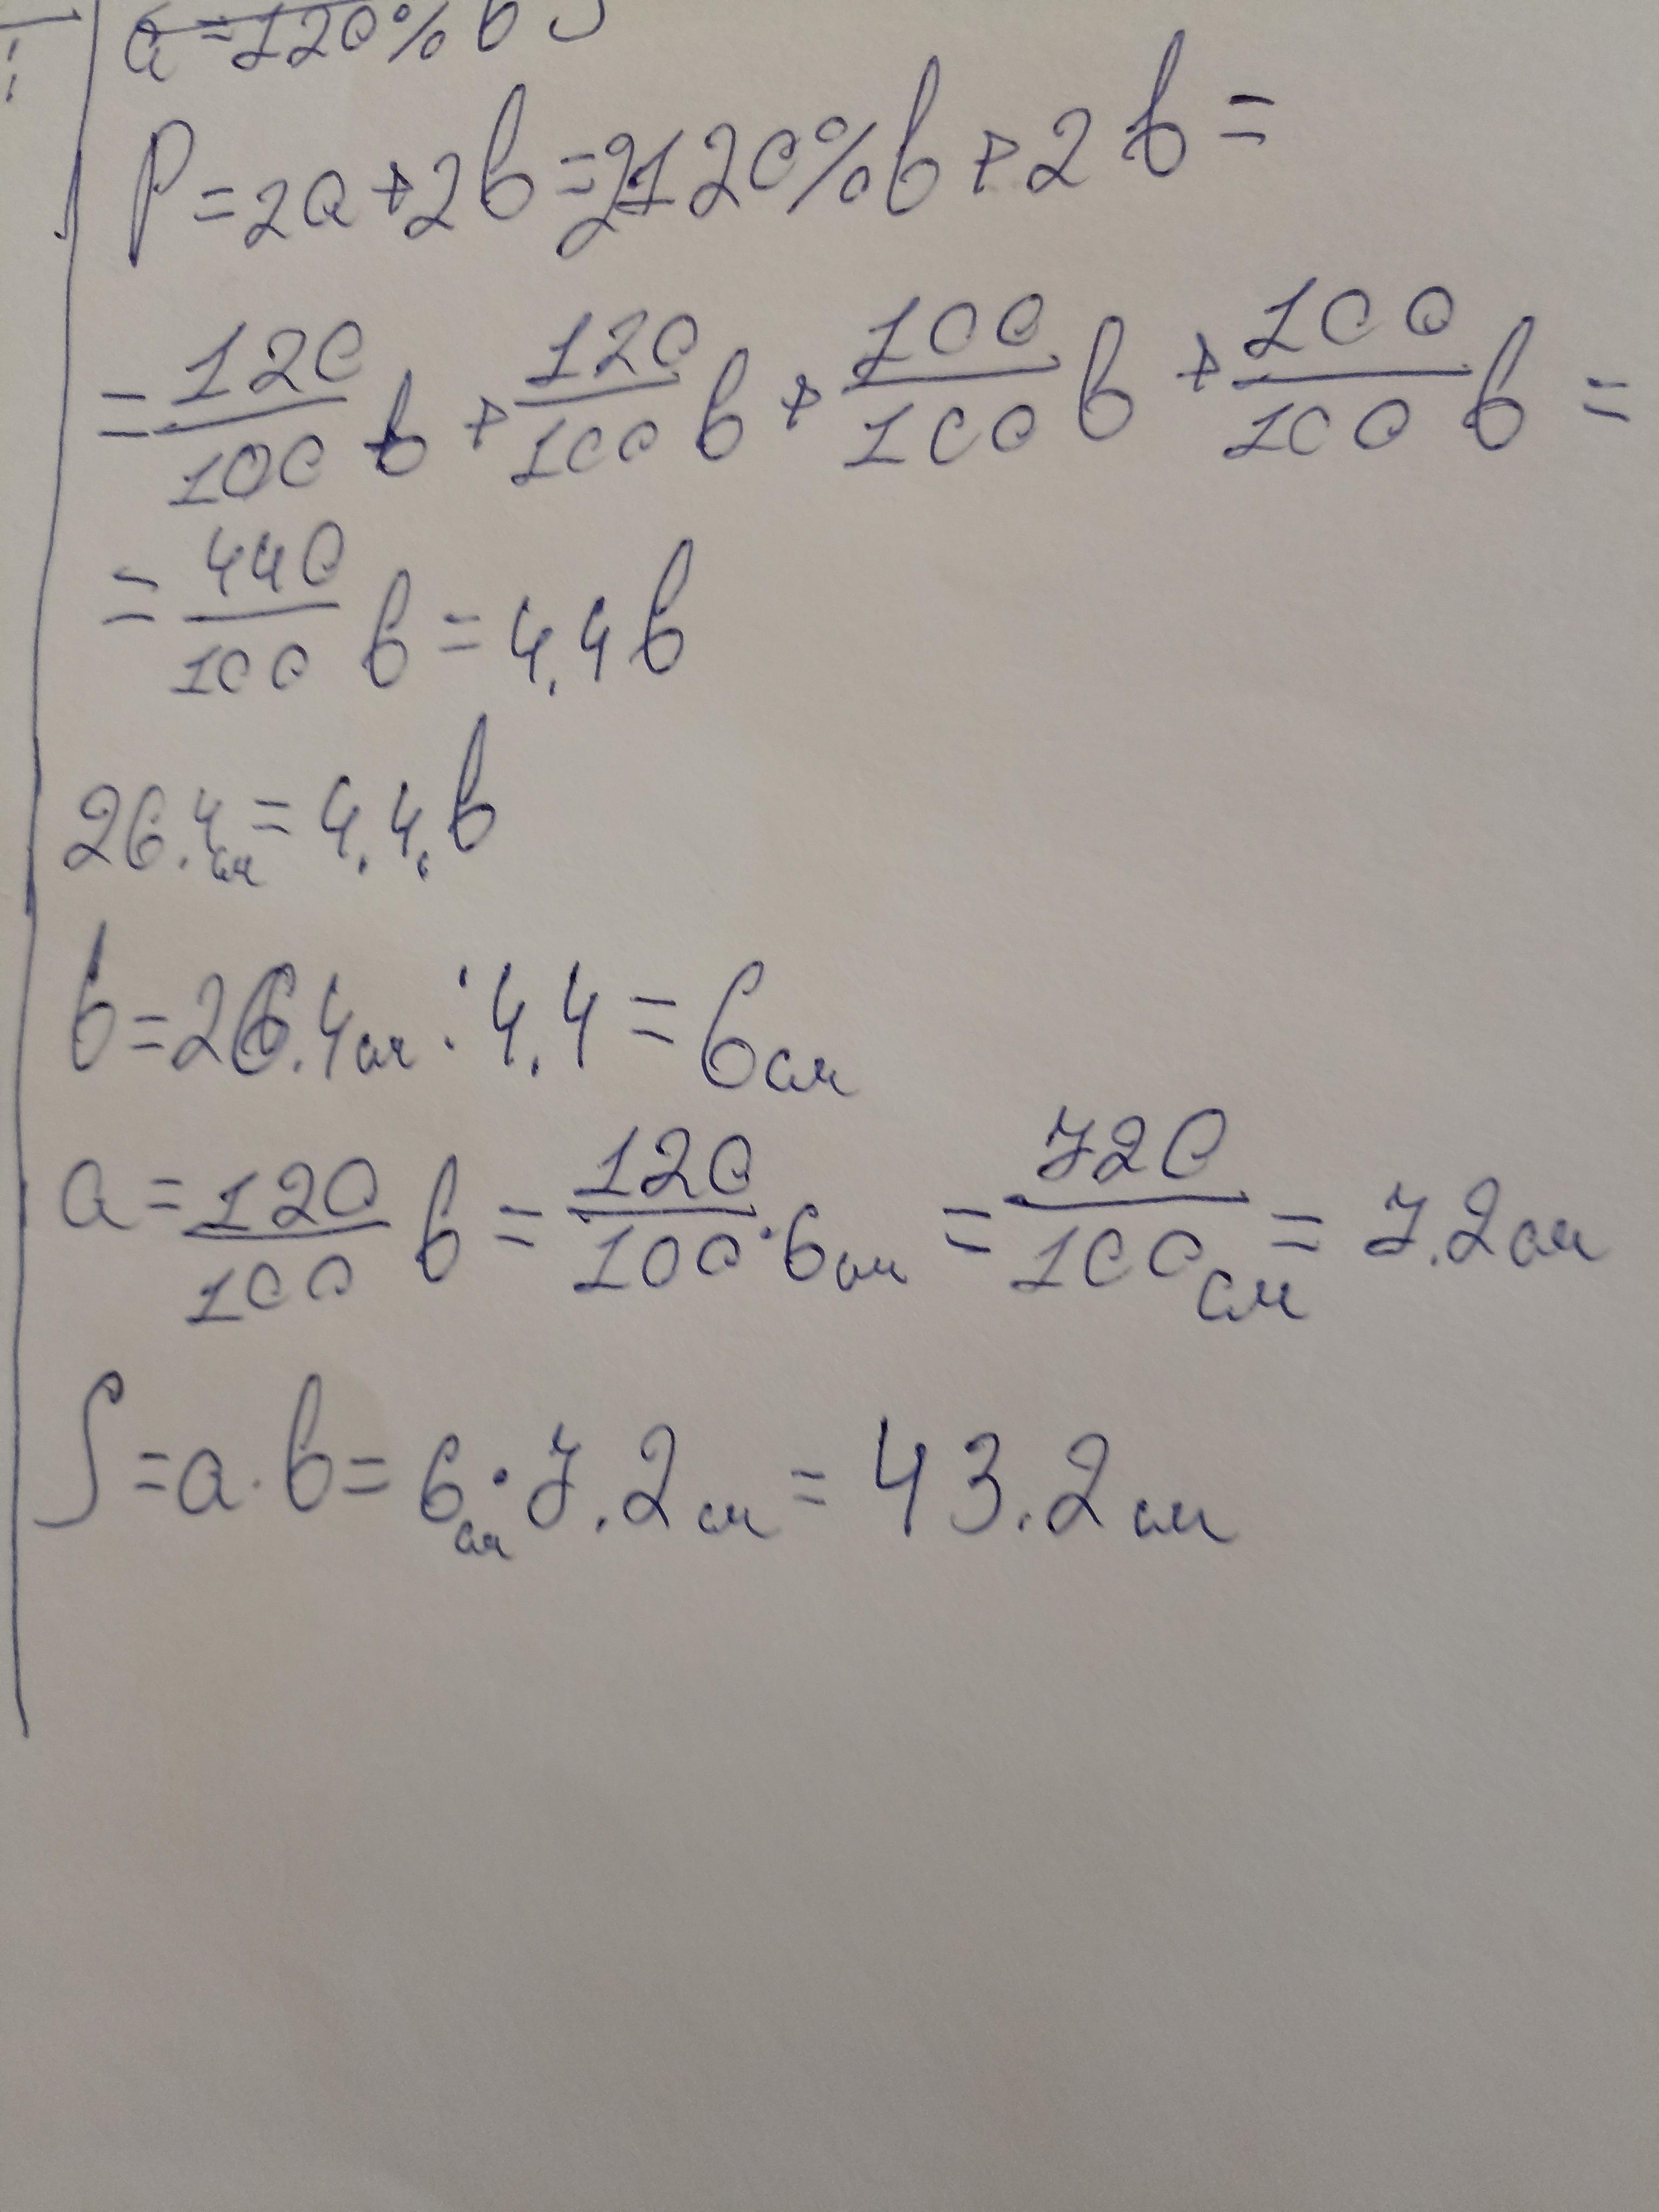 a = 120% в
P = 2a + 2в = 2·120% в + 2 в =
= 120/100 в + 120/100 в + 100/100 в + 100/100 в =
= 440/100 в = 4.4 в
26.4 см = 4.4. в
в = 26.4 см : 4.4 = 6 см
a = 120/100 в = 120/100 · 6 см = 720/100 см = 7.2 см
S = a · в = 6 см · 7.2 см = 43.2 см